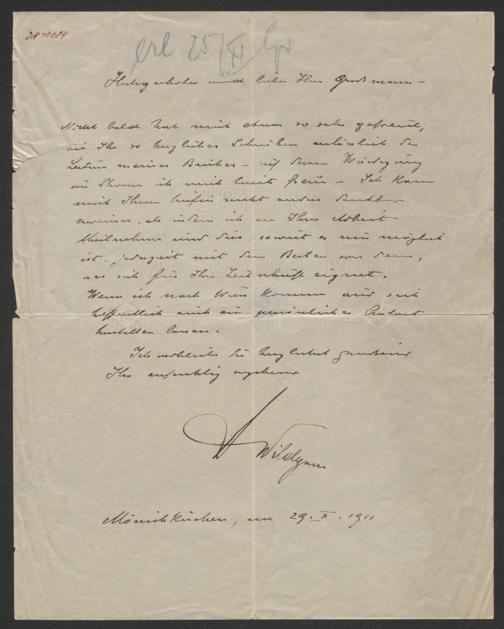 erl 25/XI Gr
und lieber Herr Grossmann –
Nicht bald hat mich etwas so sehr gefreut,
wie Ihr so herzliches Schreiben anlässlich der
Lectüre meines Buches – auf dessen Würdigung
ich mich freue – Ich kann
mich Ihnen nicht anders dankbar
erweisen, als indem ich an Ihrer Arbeit
Theil nehme und dies, soweit es mir möglich
ist, jederzeit mit dem Besten von dem,
was sich für Ihre Zeitschrift eignet.
Wenn ich nach Wien komme wird sich
hoffentlich auch ein persönlicher
herstellen lassen.
Ich verbleibe Sie herzlichst grüssend
Ihr aufrichtig ergebener
Wildgans
Mönichkirchen, am 29. X. 1911